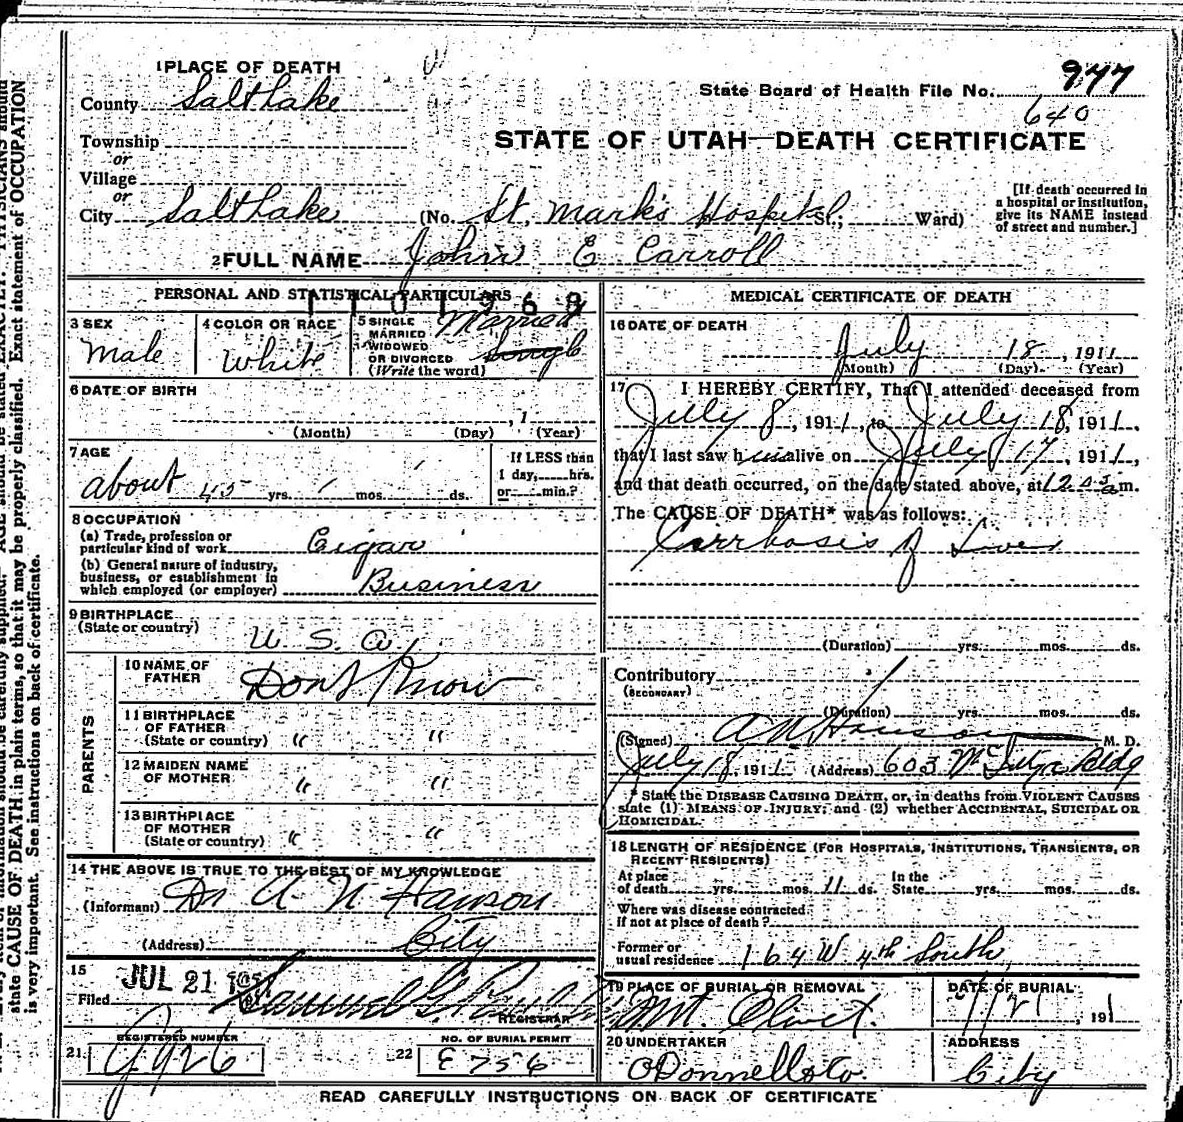 1 PLACE OF DEATH
County Salt Lake
State Board of Health File No. 977
640
Township
or
Village
or
City Salt Lake (No. St. Mark's Hospital St.; Ward)
STATE OF UTAH—DEATH CERTIFICATE
[If death occurred in
a hospital or institution,
give its NAME instead
of street and number.]
2 FULL NAME John E Carroll
PERSONAL AND STATISTICAL PARTICULARS
3 SEX
Male
4 COLOR OR RACE
White
5 SINGLE
MARRIED
WIDOWED
OR DIVORCED
(Write the word)
Married
Single
6 DATE OF BIRTH
, 1
(Month) (Day) (Year)
7 AGE
about 45 yrs. mos. ds.
If LESS than
1 day, hrs.
or min.?
8 OCCUPATION
(a) Trade, profession or
particular kind of work Cigar
(b) General nature of industry,
business, or establishment in
which employed (or employer) Business
9 BIRTHPLACE
(State or country)
U. S. a.
PARENTS
10 NAME OF
FATHER
Dont Know
11 BIRTHPLACE
OF FATHER
(State or country) " "
12 MAIDEN NAME
OF MOTHER " "
13 BIRTHPLACE
OF MOTHER
(State or country) " "
14 THE ABOVE IS TRUE TO THE BEST OF MY KNOWLEDGE
(Informant) Dr A. N Hanson
(Address) City
15
Filed JUL 21
Samuel G.
REGISTRAR
REGISTERED NUMBER
21 G926
NO. OF BURIAL PERMIT
22 E756
MEDICAL CERTIFICATE OF DEATH
16 DATE OF DEATH
July 18, 1911
(Month) (Day) (Year)
17 I HEREBY CERTIFY, That I attended deceased from
July 8, 1911, to July 18, 1911,
that I last saw him alive on July 17, 1911,
and that death occurred, on the date stated above, at m.
The CAUSE OF DEATH* was as follows:
Cirrhosis of Liver
(Duration) yrs. mos. ds.
Contributory
(SECONDARY)
(Duration) yrs. mos. ds.
(Signed) A N Hanson M. D.
July 18, 1911 (Address) 603 Bldg
* State the DISEASE CAUSING DEATH, or, in deaths from VIOLENT CAUSES
state (1) MEANS OF INJURY; and (2) whether ACCIDENTAL, SUICIDAL OR
HOMICIDAL.
18 LENGTH OF RESIDENCE (FOR HOSPITALS, INSTITUTIONS, TRANSIENTS, OR
RECENT RESIDENTS)
At place
of death yrs. mos. 11 ds.
In the
State yrs. mos. ds.
Where was disease contracted
if not at place of death?
Former or
usual residence 164 W 4th South
19 PLACE OF BURIAL OR REMOVAL
Mt. Olivet.
DATE OF BURIAL
7/21, 1911
20 UNDERTAKER
ODonnell & Co.
ADDRESS
City
READ CAREFULLY INSTRUCTIONS ON BACK OF CERTIFICATE
state CAUSE OF DEATH in plain terms, so that it may be properly classified. Exact statement of OCCUPATION
is very important. See instructions on back of certificate.